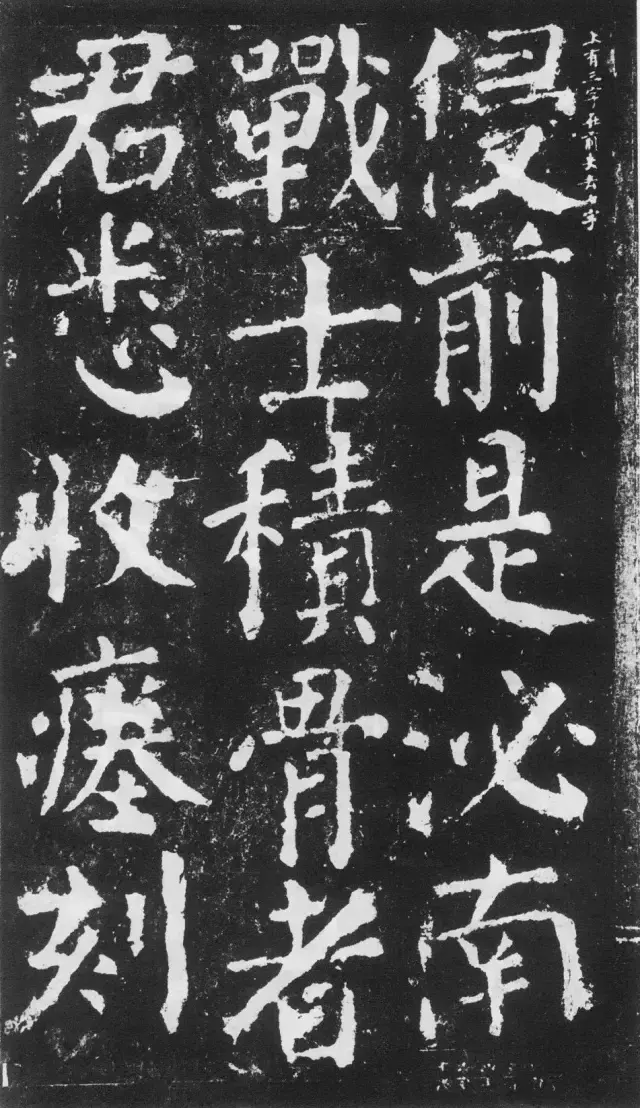 上有三字在前失去七字
侵前是泌南
戰士積骨者
君悉收瘞刻